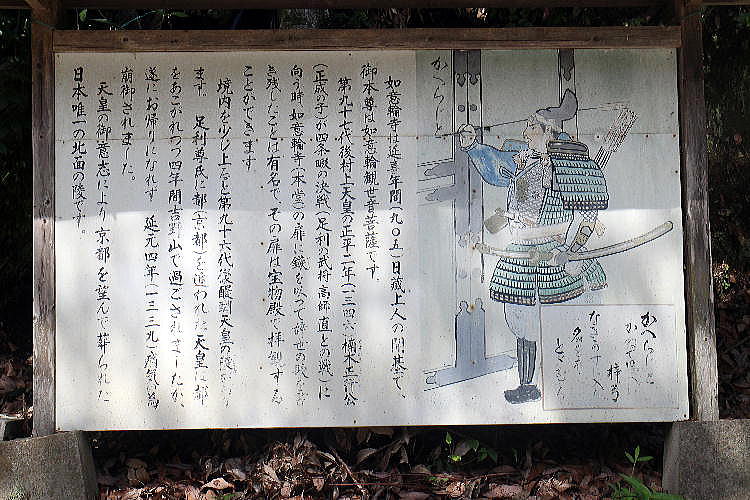 如意輪寺は延喜年間（九〇五）日蔵上人の開基で、
御本尊は如意輪観世音菩薩です。
第九十七代後村上天皇の正平二年（一三四六）楠木正行公
（正成の子）が四条畷の決戦（足利の武将高師直との戦）に
向う時如意輪寺（本堂）の扉に鏃を以って辞世の歌を書
き残したことは有名で、その扉は宝物殿で拝観する
ことができます
境内を少し上ると第九十六代後醍醐天皇の陵があり
ます。足利尊氏に都（京都）を追われた天皇は都
をあこがれつつ四年間吉野山で過ごされましたが、
遂にお帰りになれず 延元四年（一三三九）病気の為
崩御されました。
天皇の御意志により京都を望んで葬られた
日本唯一の北面の陵です。
かへらじと
かへらじと
かねて
梓弓
なき
とどむる